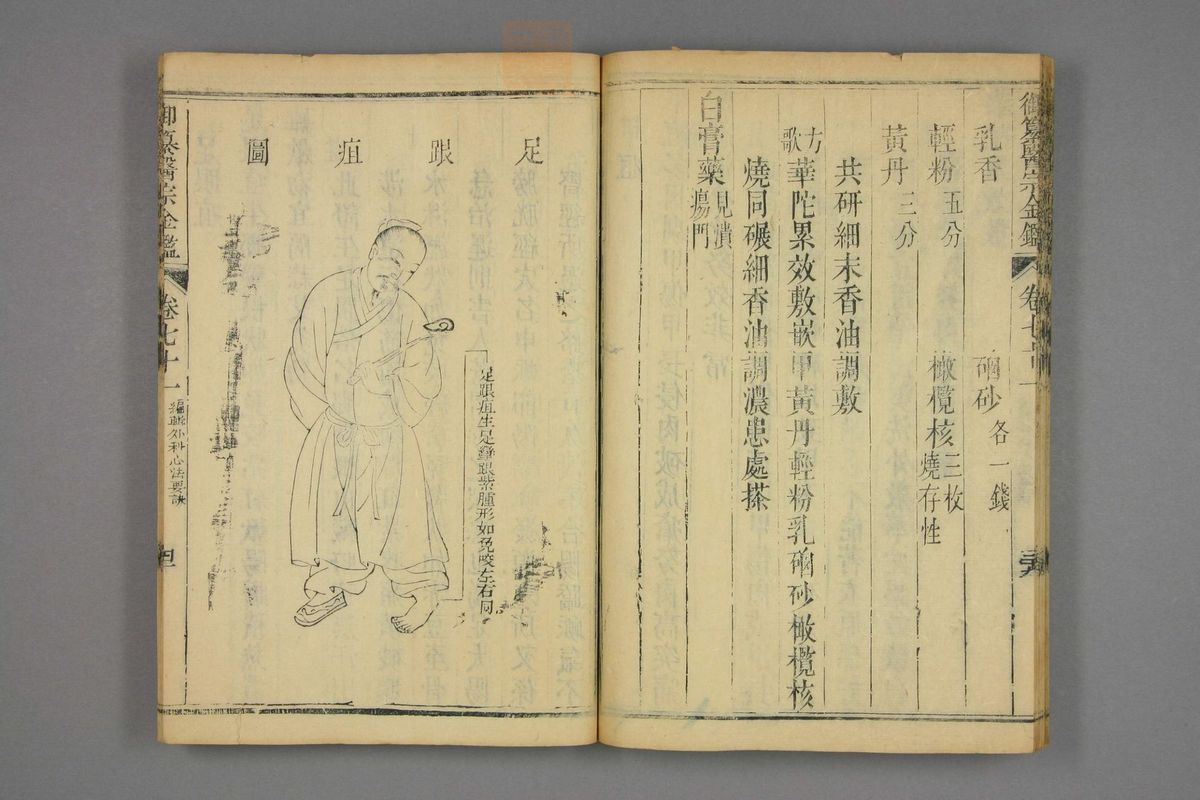 御纂醫宗金鑑 卷七十一
乳香 硇砂各一錢
輕粉五分 橄欖核三枚燒存性
黃丹三分
共研細末香油調敷
方歌 華陀累效敷嵌甲黃丹輕粉乳硇砂橄欖核
燒同碾細香油調濃患處搽
白膏藥見潰瘍門
足跟疽圖
足跟疽生足攣跟紫腫形如兔咬左右同
御纂醫宗金鑑 卷七十一 編輯外科心法要訣